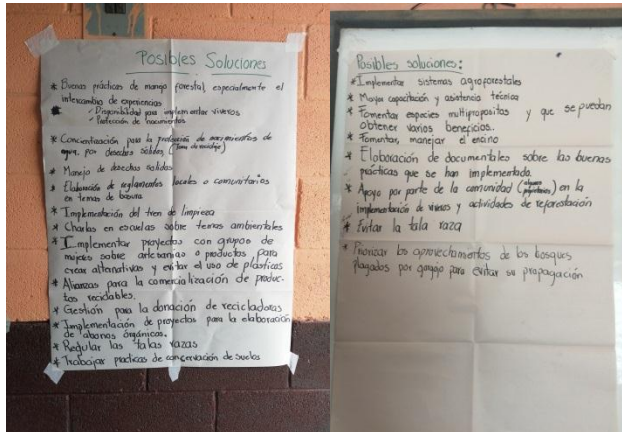 Posibles Soluciones
* Buenas prácticas de manejo forestal, especialmente el
intercambio de experiencias
✓ Disponibilidad para implementar viveros
✓ Protección de nacimientos
* Concientización para la protección de nacimientos de
agua, por desechos sólidos, (Tema de reciclaje)
* Manejo de desechos sólidos
* Elaboración de reglamentos locales o comunitarios
en temas de basura
* Implementación del tren de limpieza
* Charlas en escuelas sobre temas ambientales
* Implementar proyectos con grupos de
mujeres sobre artesanías o productos para
crear alternativas y evitar el uso de plásticos
* Alianzas para la comercialización de produc-
tos reciclables.
* Gestión para la donación de recicladoras
* Implementación de proyectos para la elaboración
de abonos órganicos.
* Regular las talas razas
* Trabajar practicas de conservación de suelos
Posibles soluciones:
* Implementar sistemas agroforestales
* Mayor capacitación y asistencia técnica
* Fomentar especies multipropositos y que se puedan
obtener varios beneficios.
* Fomentar, manejar el encino
* Elaboración de documentales sobre las buenas
prácticas que se han implementado.
* Apoyo por parte de la comunidad (algunos
propietarios) en la
implementación de viveros y actividades de reforestación
* Evitar la tala raza
* Priorizar los aprovechamientos de los bosques
plagados por gorgojo para evitar su propagación